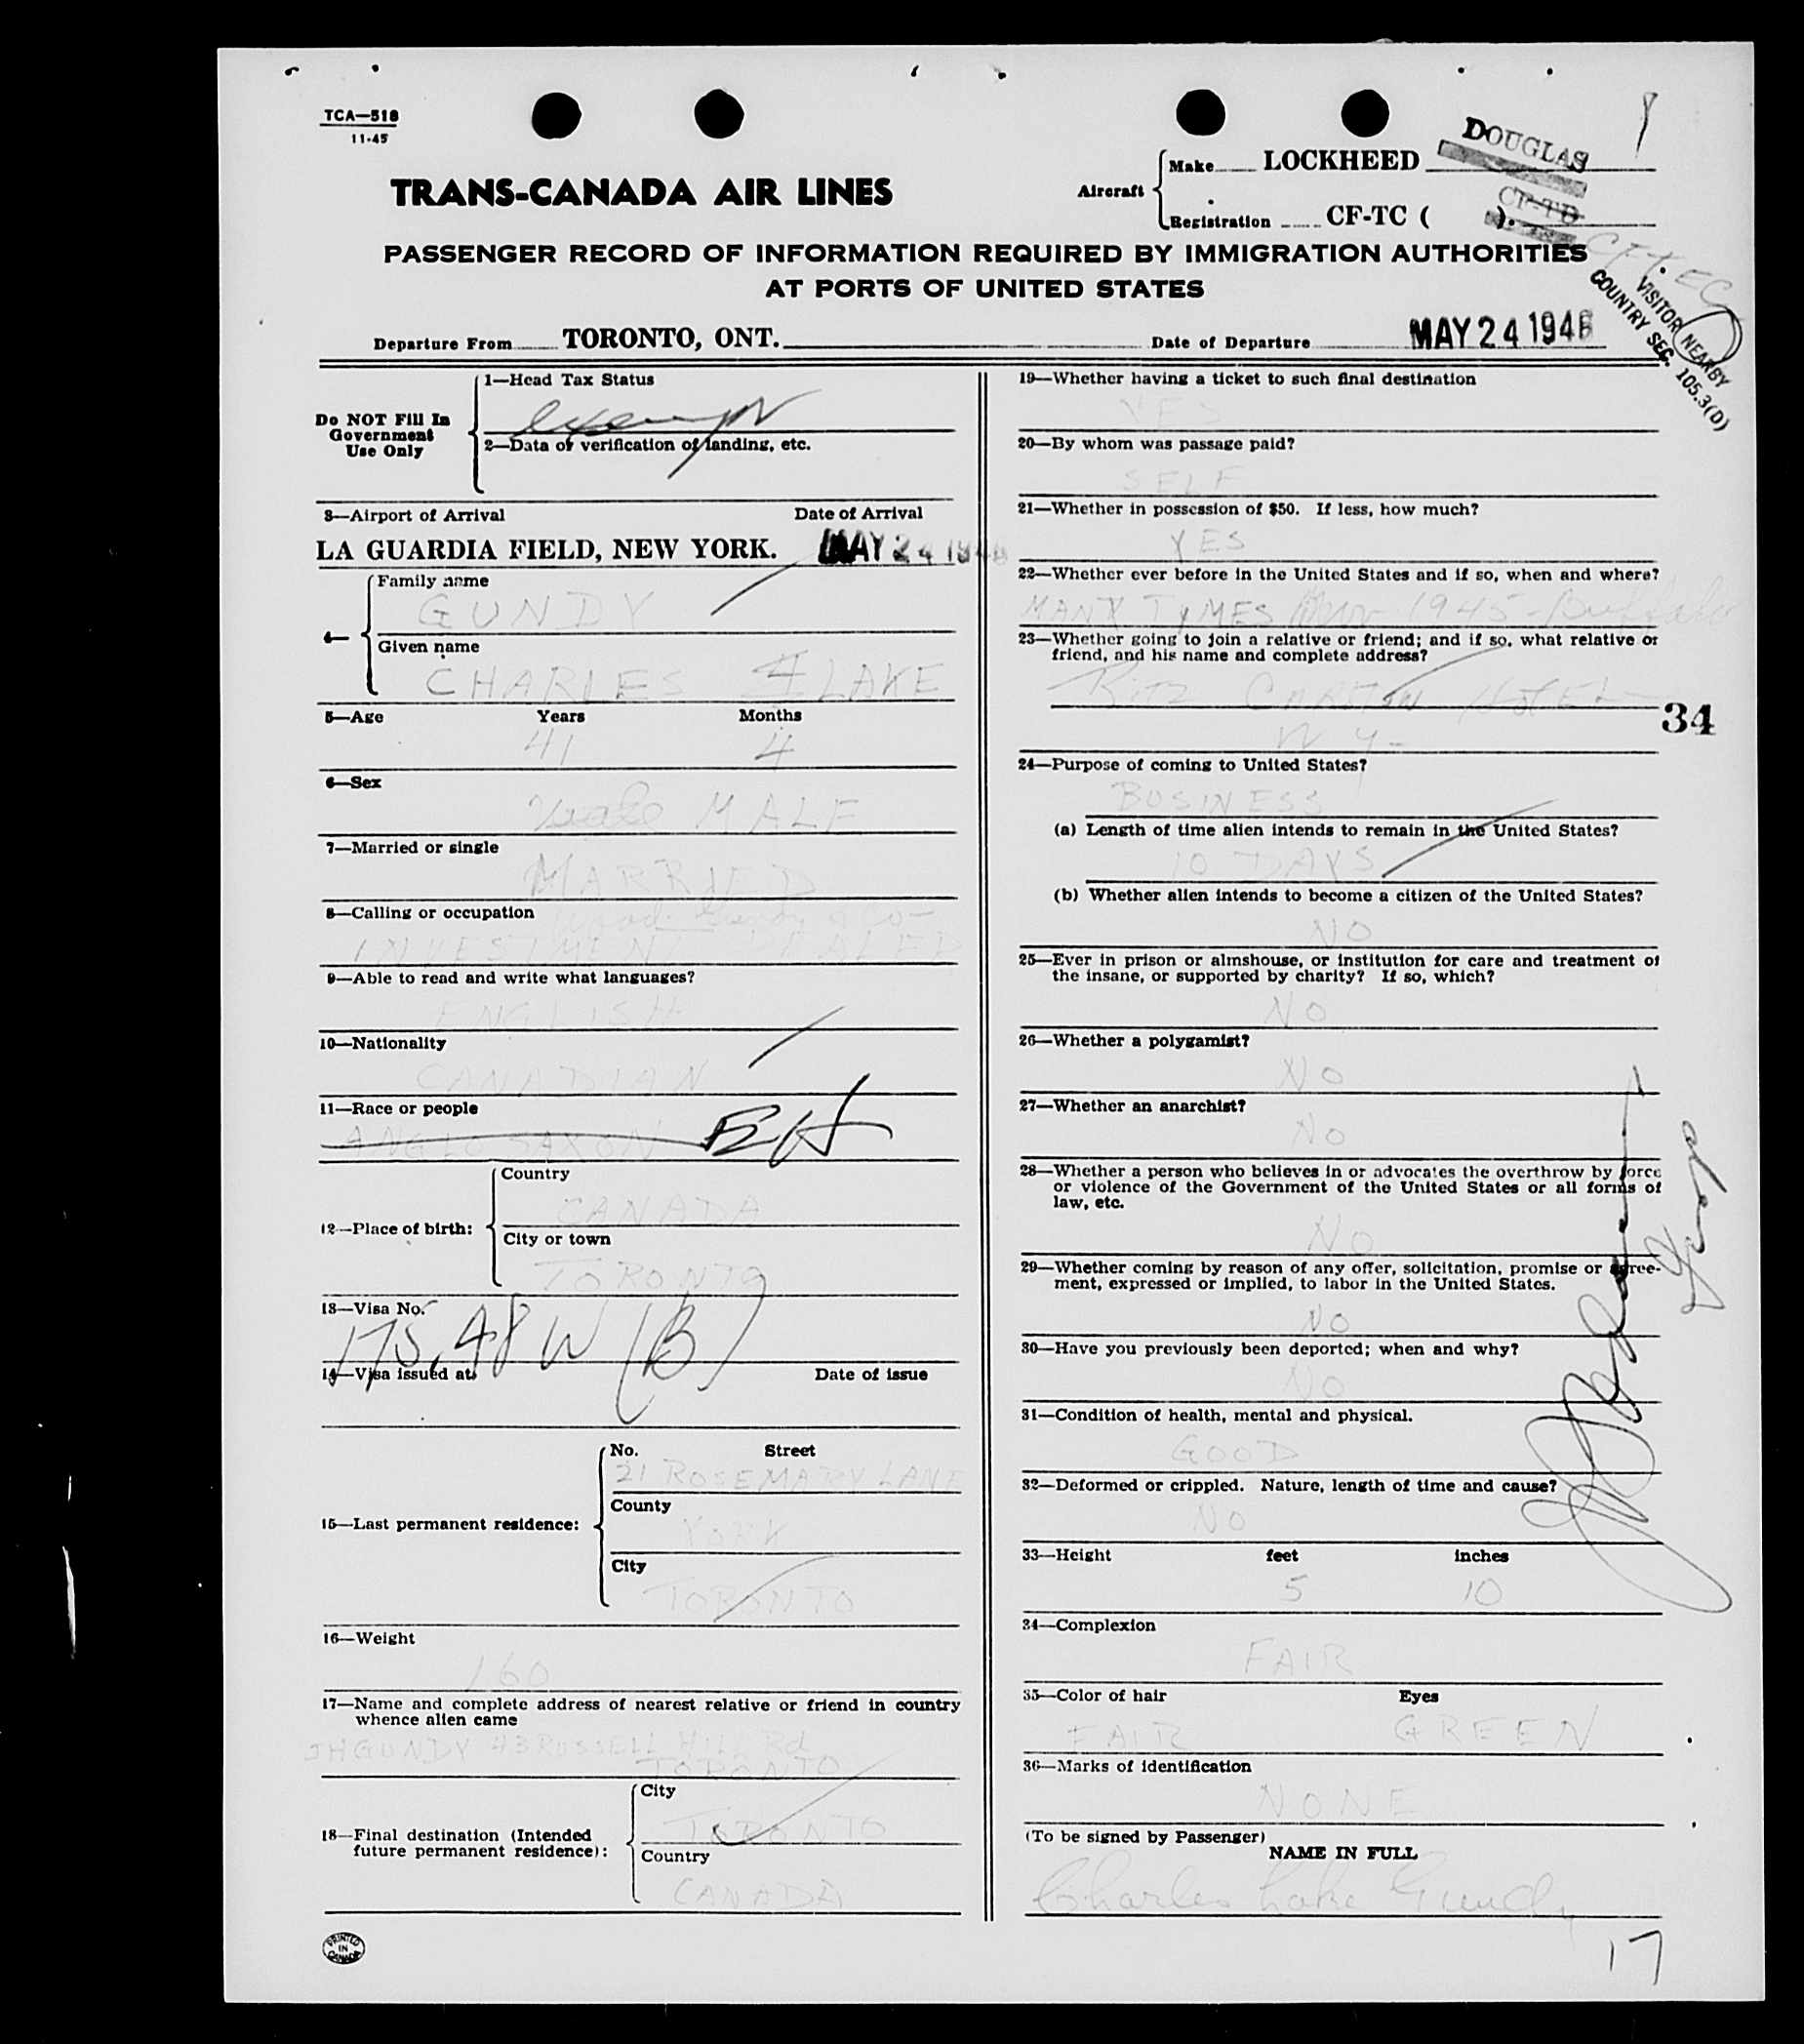 TCA—518
11-45
TRANS-CANADA AIR LINES
Aircraft
Make LOCKHEED DOUGLAS
Registration CF-TC ( ). CF-TD
PASSENGER RECORD OF INFORMATION REQUIRED BY IMMIGRATION AUTHORITIES
AT PORTS OF UNITED STATES
VISITOR NEARBY
COUNTRY SEC. 105.3(D)
Departure From TORONTO, ONT. Date of Departure MAY 24 1946
Do NOT Fill In
Government
Use Only
1—Head Tax Status
exempt
2—Data of verification of landing, etc.
3—Airport of Arrival Date of Arrival
LA GUARDIA FIELD, NEW YORK. MAY 24 1946
4—
Family name
GUNDY
Given name
CHARLES LAKE
5—Age Years Months
41 4
6—Sex
MALE
7—Married or single
MARRIED
8—Calling or occupation
Wood Gundy & Co-
INVESTMENT DEALER
9—Able to read and write what languages?
ENGLISH
10—Nationality
CANADIAN
11—Race or people
ANGLO SAXON
12—Place of birth:
Country
CANADA
City or town
TORONTO
13—Visa No.
175.48W (B)
14—Visa issued at Date of issue
15—Last permanent residence:
No. Street
21 ROSEMARY LANE
County
YORK
City
TORONTO
16—Weight
160
17—Name and complete address of nearest relative or friend in country
whence alien came
JH GUNDY 43 RUSSELL HILL Rd
TORONTO
18—Final destination (Intended
future permanent residence):
City
TORONTO
Country
CANADA
PRINTED
IN
CANADA
19—Whether having a ticket to such final destination
YES
20—By whom was passage paid?
SELF
21—Whether in possession of $50. If less, how much?
YES
22—Whether ever before in the United States and if so, when and where?
MANY TYMES 1945 - Buffalo
23—Whether going to join a relative or friend; and if so, what relative or
friend, and his name and complete address?
Ritz CARLTON HOTEL
N Y-
34
24—Purpose of coming to United States?
BUSINESS
(a) Length of time alien intends to remain in the United States?
10 DAYS
(b) Whether alien intends to become a citizen of the United States?
NO
25—Ever in prison or almshouse, or institution for care and treatment of
the insane, or supported by charity? If so, which?
NO
26—Whether a polygamist?
NO
27—Whether an anarchist?
NO
28—Whether a person who believes in or advocates the overthrow by force
or violence of the Government of the United States or all forms of
law, etc.
NO
29—Whether coming by reason of any offer, solicitation, promise or agree-
ment, expressed or implied, to labor in the United States.
NO
30—Have you previously been deported; when and why?
NO
31—Condition of health, mental and physical.
GOOD
32—Deformed or crippled. Nature, length of time and cause?
NO
33—Height feet inches
5 10
34—Complexion
FAIR
35—Color of hair Eyes
FAIR GREEN
36—Marks of identification
NONE
(To be signed by Passenger)
NAME IN FULL
Charles Lake Gundy
17